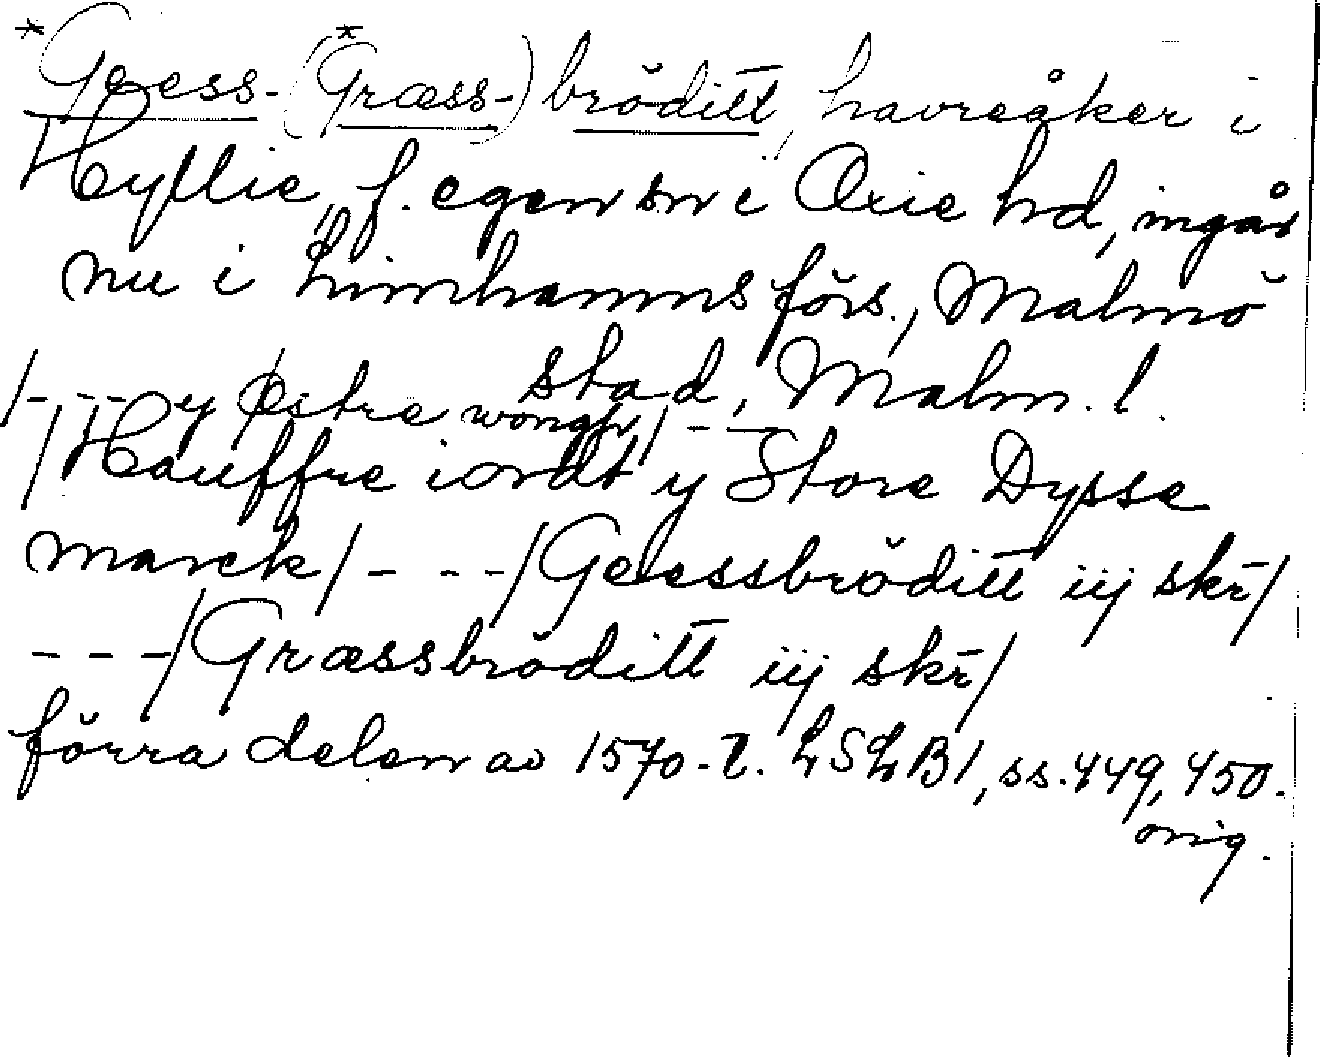 *Geess- (*Græss-) bröditt, havreåker i
Hyllie, f. egen sn i Oxie hd, ingår
nu i Limhamns förs., Malmö
stad, Malm. l.
/--- y Østre wongh/ ---
/Hauffre iordt y Store Dysse
marck/ ---/Geessbröditt iij skr̄/
---/Græssbröditt iij skr̄/
förra delen av 1570-t. LSLB1, ss. 449, 450.
orig.